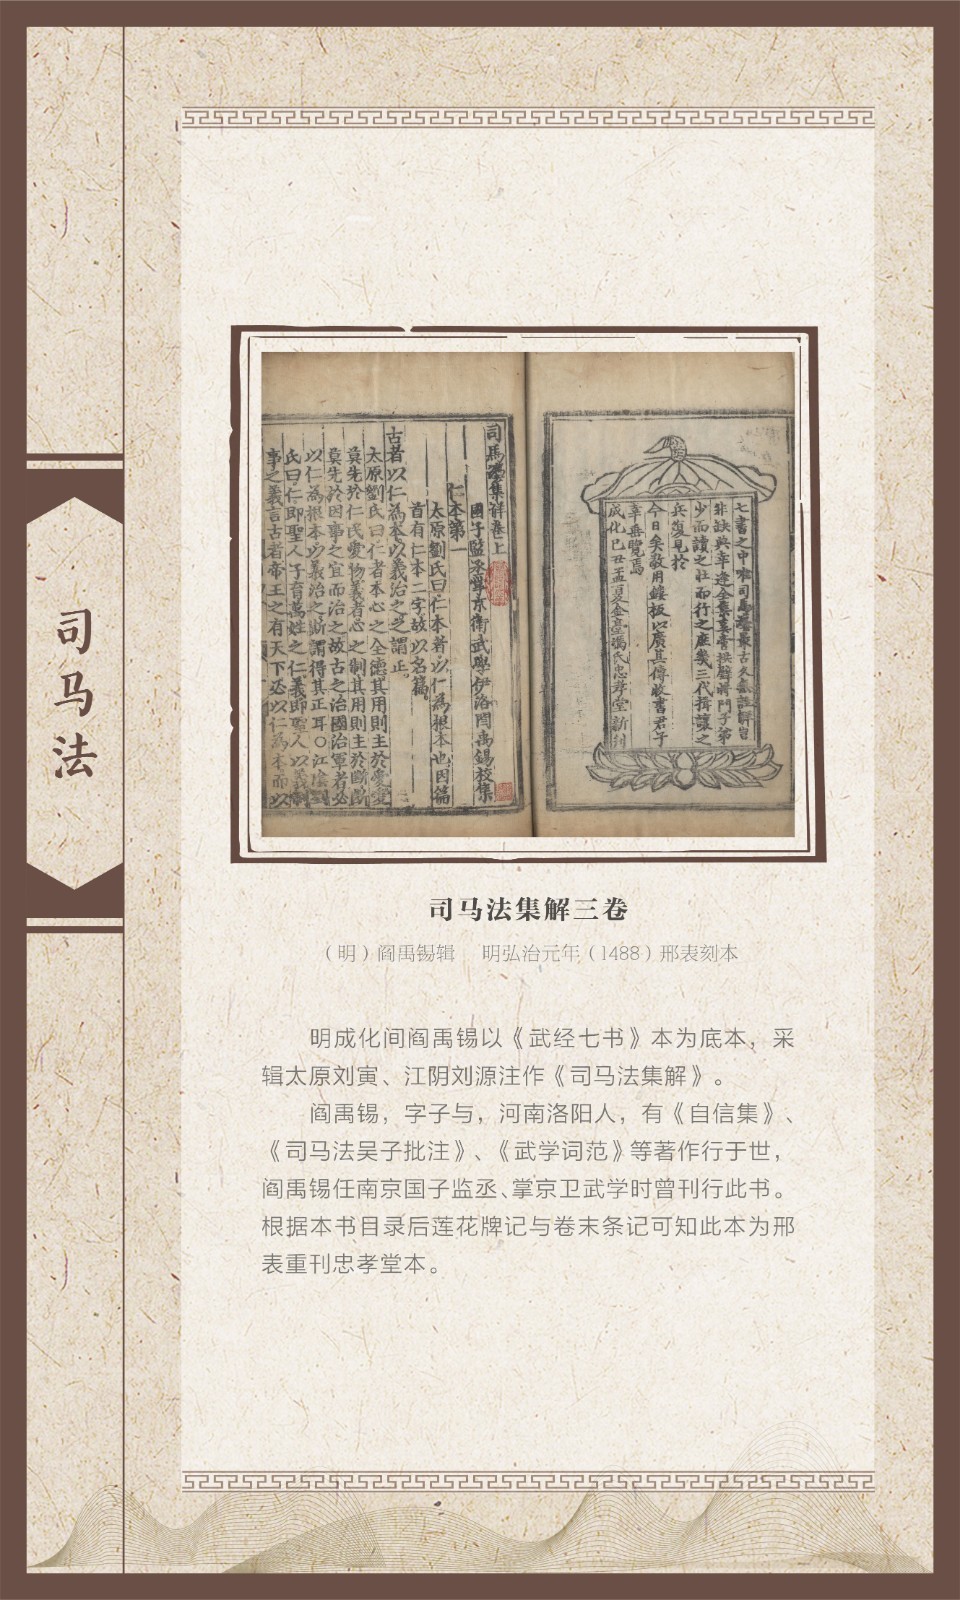 司马法
司馬法集解卷上
國子監丞掌京衛武學伊洛閻禹錫校集
仁本第一
太原劉氏曰仁本者以仁為根本也因篇
首有仁本二字故以名篇
古者以仁為本以義治之之謂正
太原劉氏曰仁者本心之全德其用則主於愛愛
莫先於仁民愛物義者心之制其用則主於斷斷
莫先於因事之宜而治之故古之治國治軍者必
以仁為根本以義治之斯謂得其正耳○江陰劉
氏曰仁即聖人子育萬姓之仁義即聖人以義制
事之義言古者帝王之有天下必以仁為本而以
七書之中唯司馬法最古久無註解豈
非缺典幸逢全集直書撰醳將門子弟
少而讀之壯而行之庶幾三代揖讓之
兵復見於
今日矣敬用鏤板以廣其傳收書君子
幸垂覽焉
成化己丑孟夏金臺馮氏忠孝堂新刊
司马法集解三卷
（明）阎禹锡辑 明弘治元年（1488）邢表刻本
明成化间阎禹锡以《武经七书》本为底本，采
辑太原刘寅、江阴刘源注作《司马法集解》。
阎禹锡，字子与，河南洛阳人，有《自信集》、
《司马法吴子批注》、《武学词范》等著作行于世，
阎禹锡任南京国子监丞、掌京卫武学时曾刊行此书。
根据本书目录后莲花牌记与卷末条记可知此本为邢
表重刊忠孝堂本。